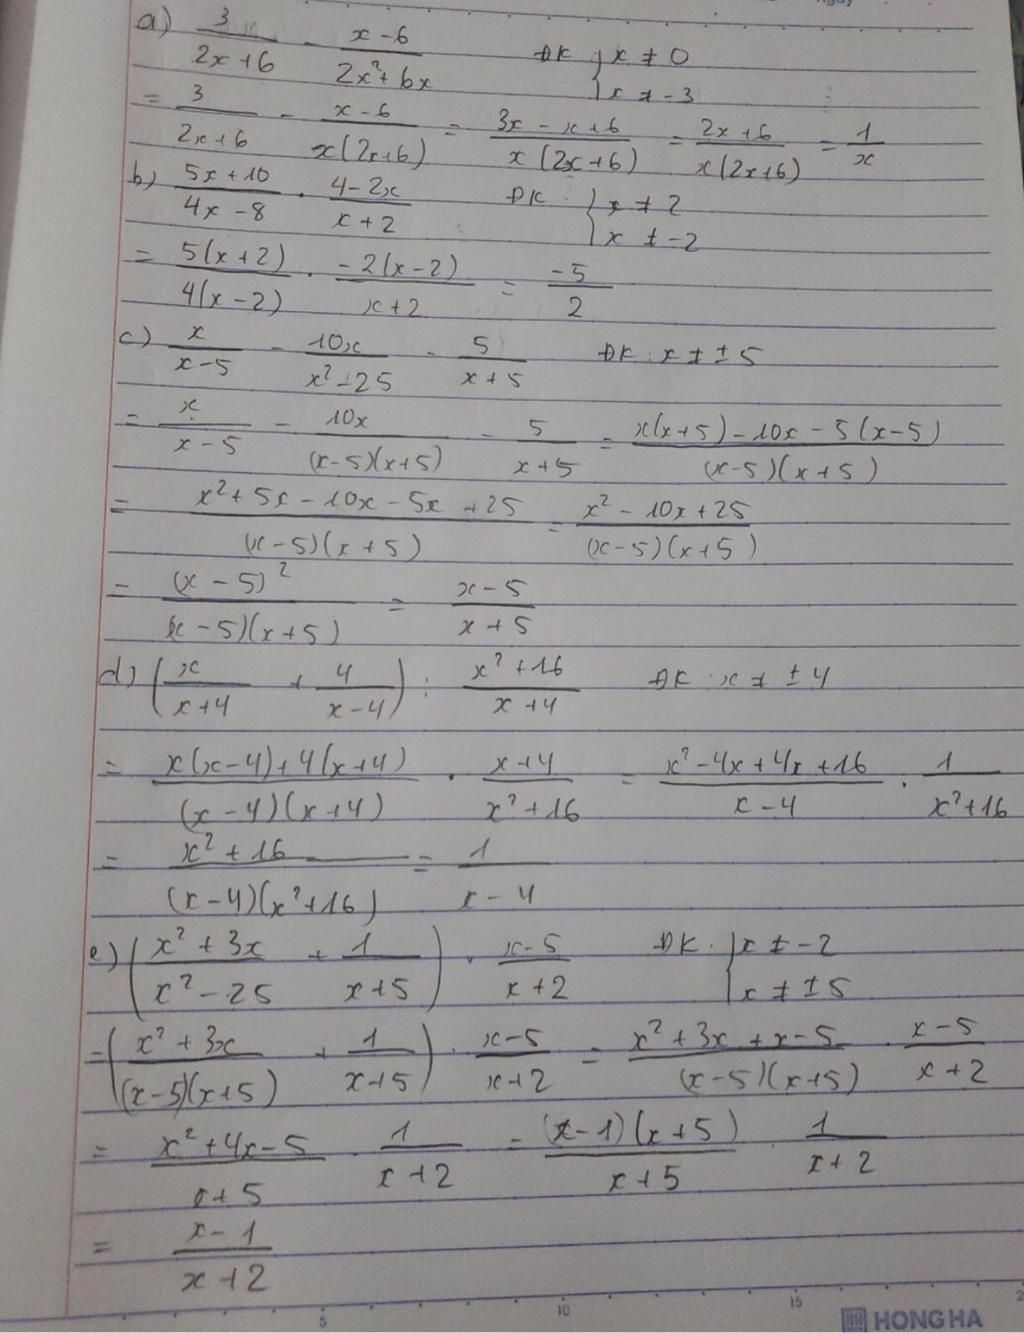 a) 3/(2x+6) - (x-6)/(2x²+6x) ĐK { x ≠ 0
{ x ≠ -3
= 3/(2x+6) - (x-6)/(x(2x+6)) = (3x-x+6)/(x(2x+6)) = (2x+6)/(x(2x+6)) = 1/x
b) (5x+10)/(4x-8) . (4-2x)/(x+2) ĐK: { x ≠ 2
{ x ≠ -2
= 5(x+2)/4(x-2) . -2(x-2)/(x+2) = -5/2
c) x/(x-5) - 10x/(x²-25) - 5/(x+5) ĐK: x ≠ ±5
= x/(x-5) - 10x/((x-5)(x+5)) - 5/(x+5) = (x(x+5)-10x-5(x-5))/((x-5)(x+5))
= (x²+5x-10x-5x+25)/((x-5)(x+5)) = (x²-10x+25)/((x-5)(x+5))
= (x-5)²/((x-5)(x+5)) = (x-5)/(x+5)
d) (x/(x+4) + 4/(x-4)) : (x²+16)/(x+4) ĐK: x ≠ ±4
= (x(x-4)+4(x+4))/((x-4)(x+4)) . (x+4)/(x²+16) = (x²-4x+4x+16)/(x-4) . 1/(x²+16)
= (x²+16)/((x-4)(x²+16)) = 1/(x-4)
e) ((x²+3x)/(x²-25) + 1/(x+5)) . (x-5)/(x+2) ĐK: { x ≠ -2
{ x ≠ ±5
= ((x²+3x)/((x-5)(x+5)) + 1/(x+5)) . (x-5)/(x+2) = (x²+3x+x-5)/((x-5)(x+5)) . (x-5)/(x+2)
= (x²+4x-5)/(x+5) . 1/(x+2) = ((x-1)(x+5))/(x+5) . 1/(x+2)
= (x-1)/(x+2)
5 10 15 2
HONG HA